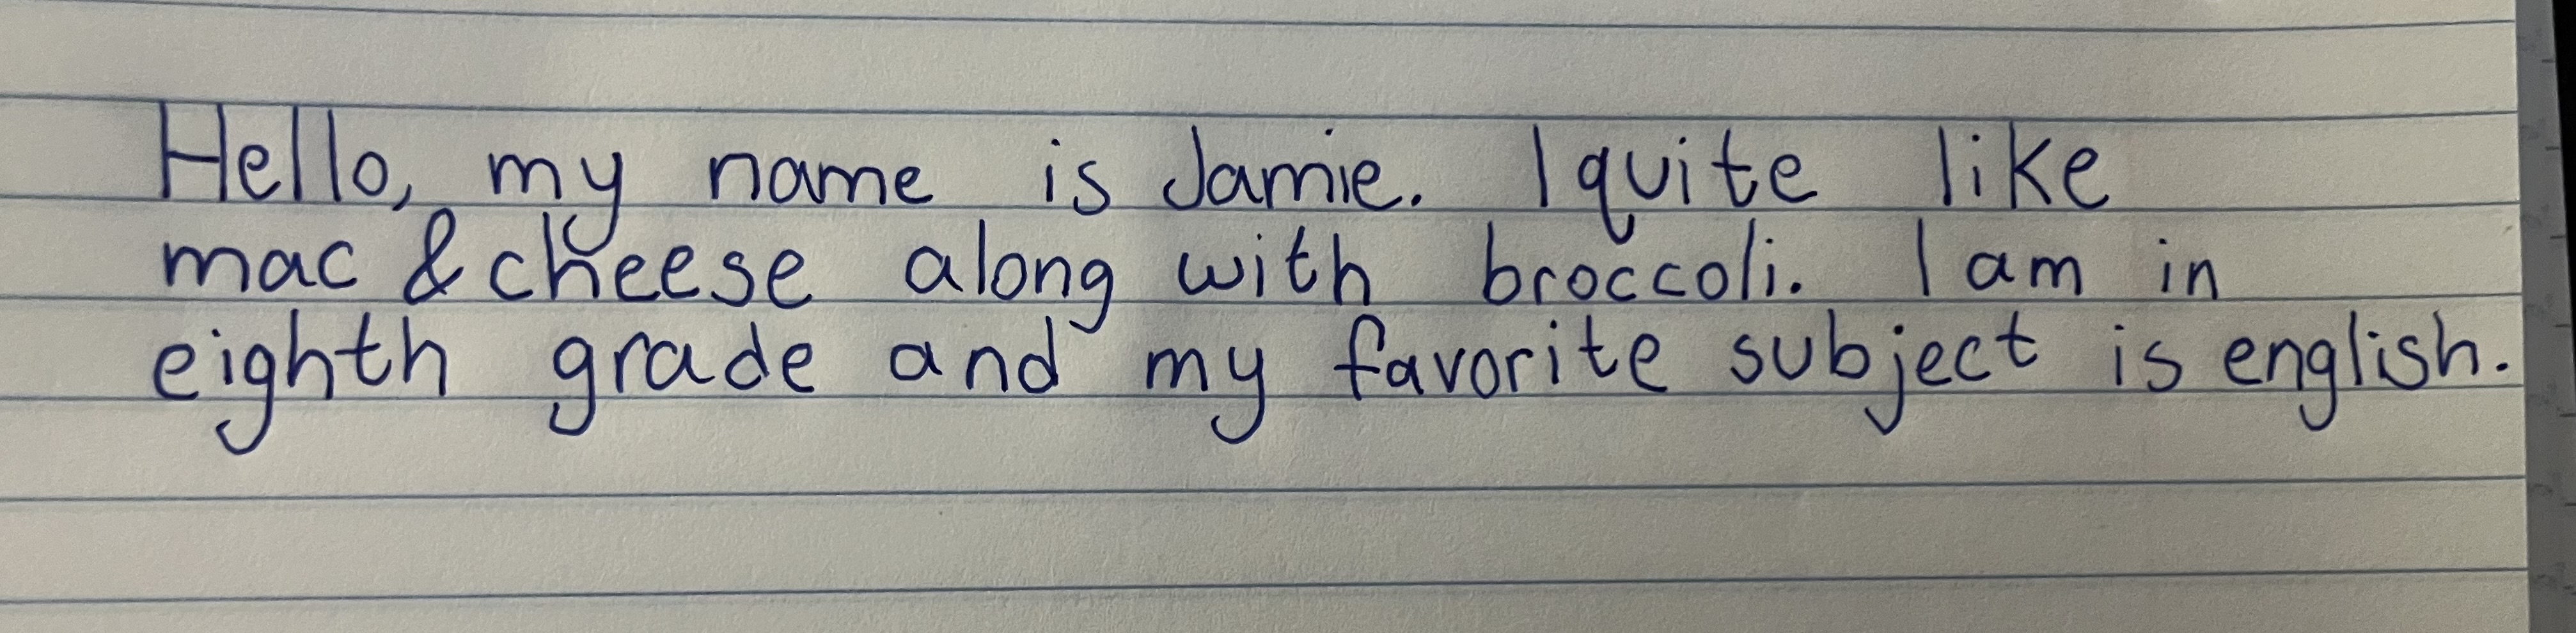 Hello, my name is Jamie. I quite like
mac & cheese along with broccoli. I am in
eighth grade and my favorite subject is english.